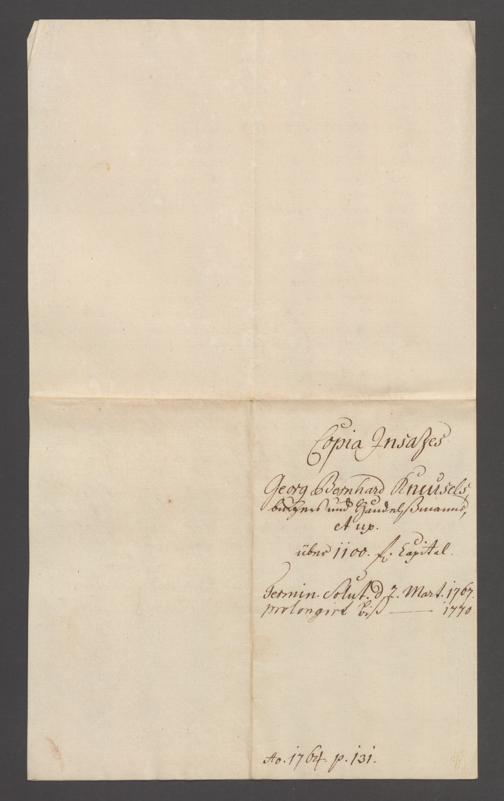 Copia Insatzes
Georg Bernhard Kneusels,
burgers und Handelßmanns,
et ux.
über 1100. f. Capital.
Termin. Solut. d 2. Mart. 1767.
prolongirt biß — 1770
Ao. 1764. p. 131.